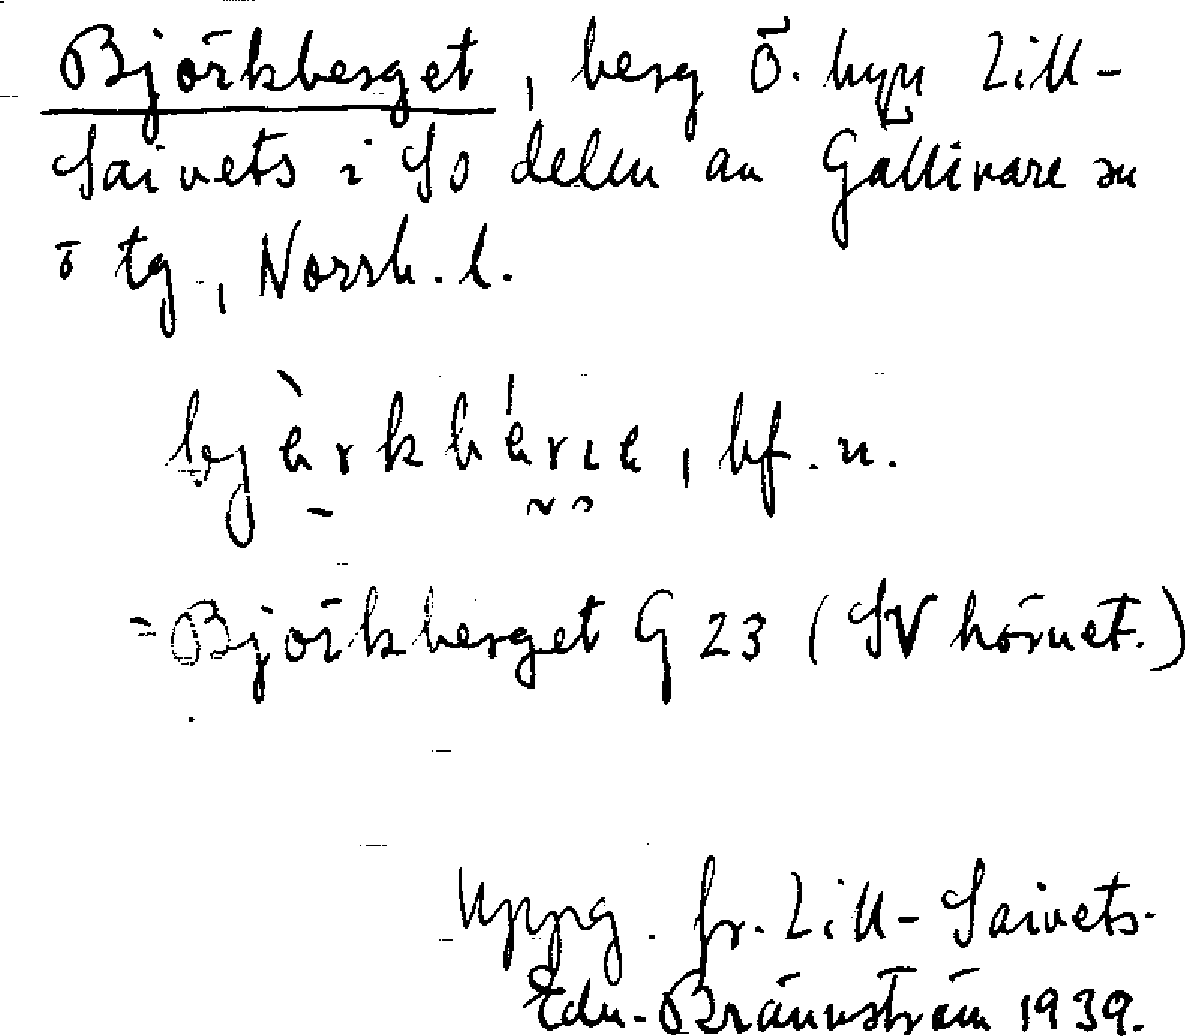 Björkberget, berg Ö. byn Lill-
Saivets i SO delen av Gällivare sn
o tg, Norrb. l.
bjèrkbérıe, bf. n.
= Björkberget G 23 (SV hörnet.)
Uppg. fr. Lill-Saivets.
Edv. Brännström 1939.